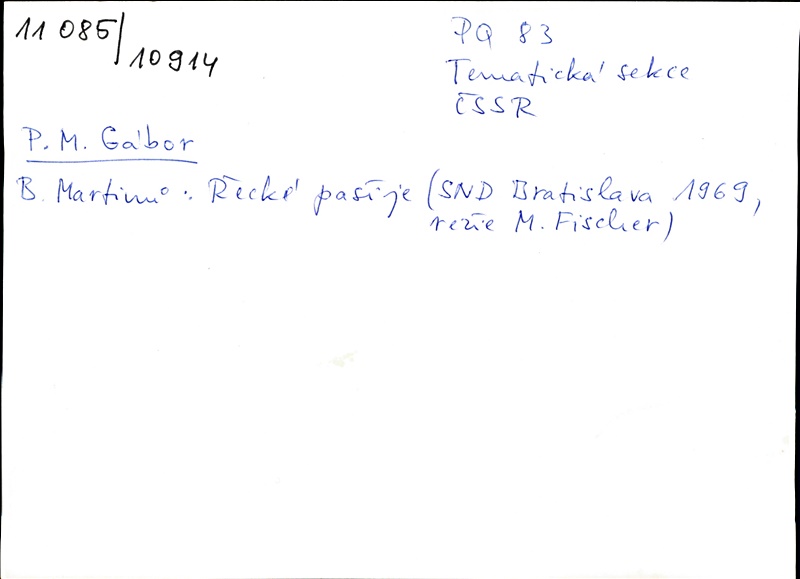 11 085/10914
PQ 83
Tematická sekce
ČSSR
P. M. Gábor
B. Martinů: Řecké pašije (SND Bratislava 1969,
režie M. Fischer)